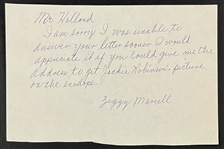 Mr Holland
I am sorry I was unable to
answer your letter sooner I would
appreciate it if you could give me the
address to get Jackie Robinson's picture
on the
Ziggy